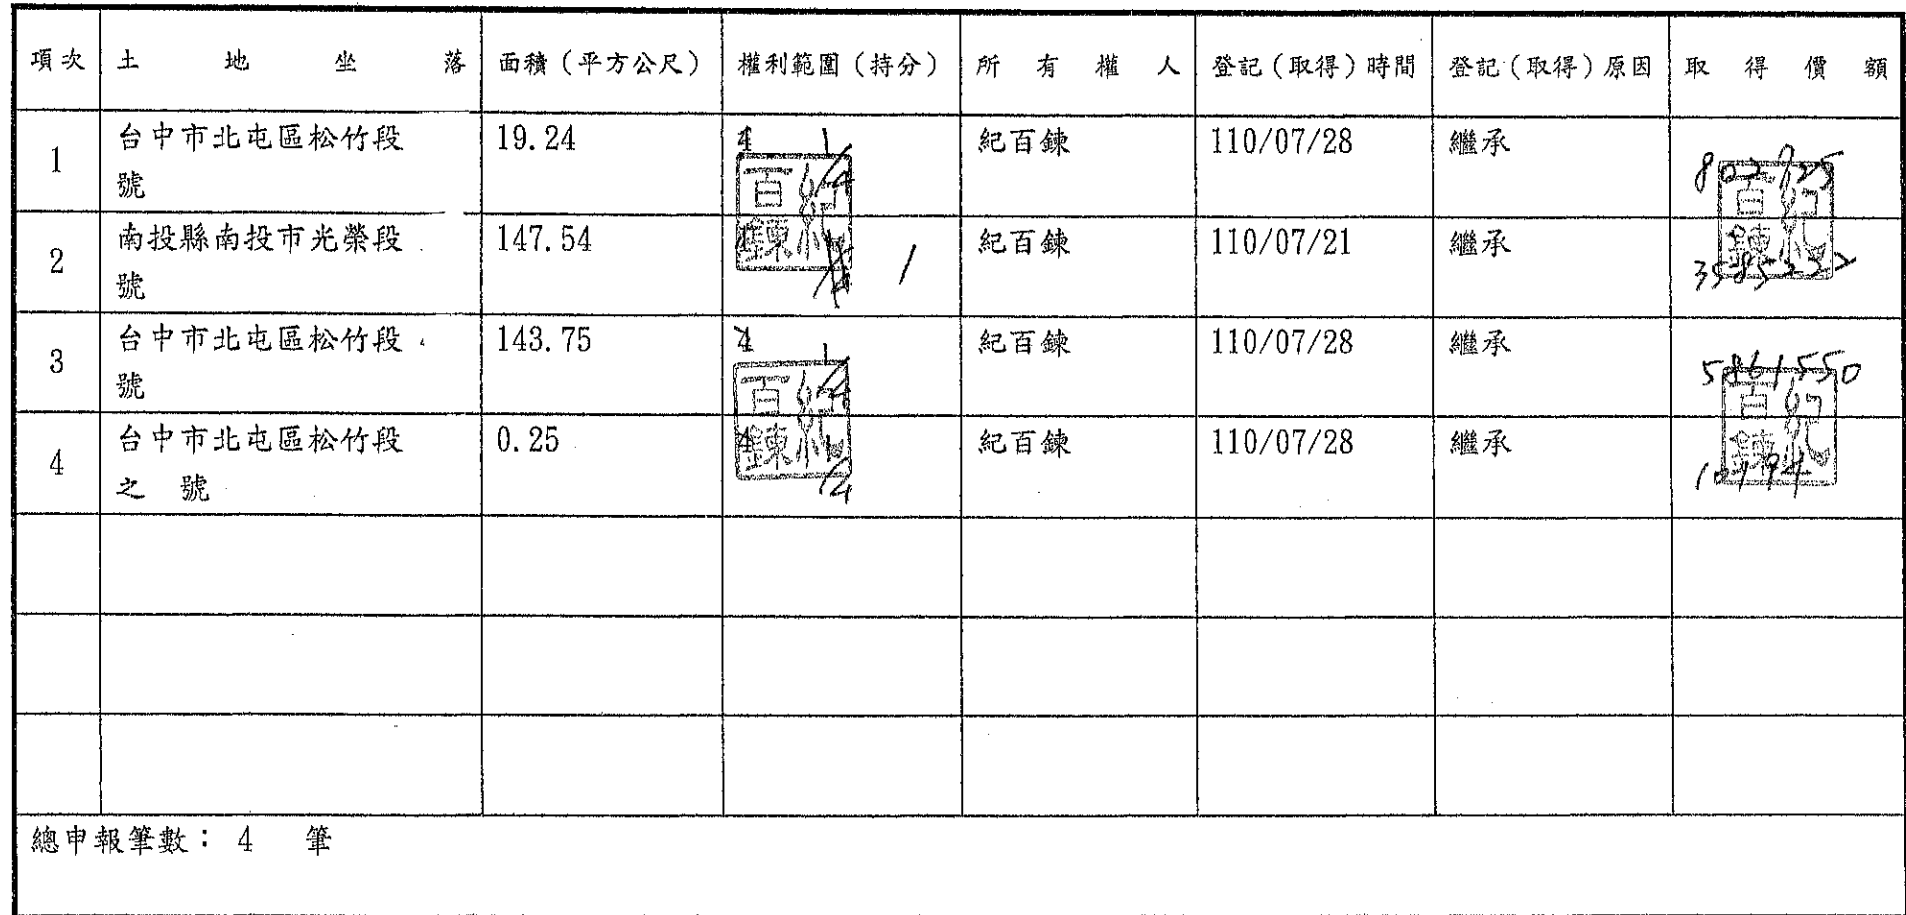 項次 土地坐落 面積(平方公尺) 權利範圍(持分) 所有權人 登記(取得)時間 登記(取得)原因 取得價額
1 台中市北屯區松竹段 19.24 4 1/4 紀百鍊 110/07/28 繼承
號
2 南投縣南投市光榮段 147.54 1 紀百鍊 110/07/21 繼承
號
3 台中市北屯區松竹段 143.75 4 1/4 紀百鍊 110/07/28 繼承 5861550
號
4 台中市北屯區松竹段 0.25 4 1/4 紀百鍊 110/07/28 繼承 10194
之 號
紀百鍊
紀百鍊
紀百鍊
紀百鍊
總申報筆數: 4 筆